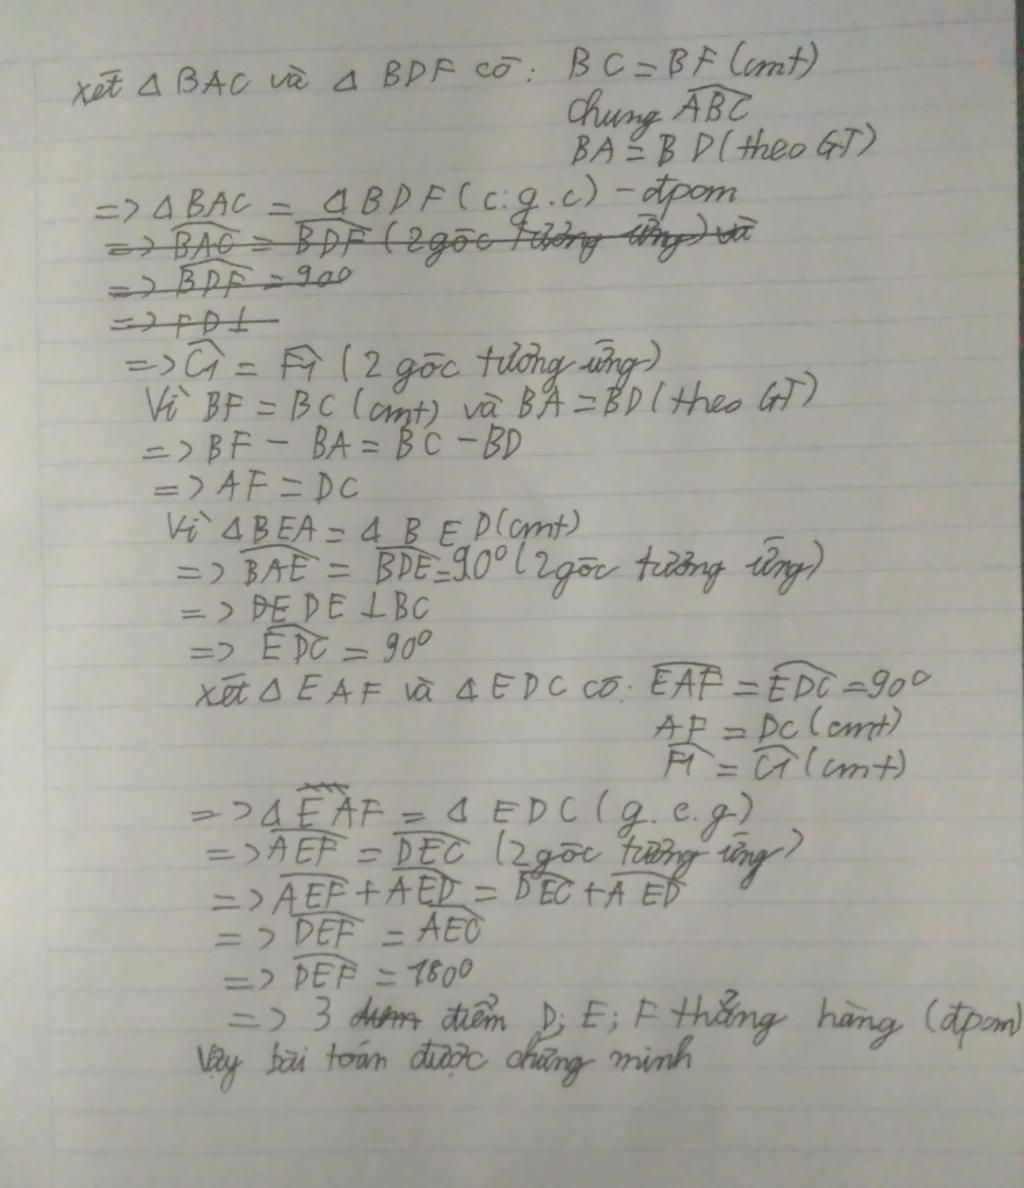 xét Δ BAC và Δ BDF có: BC = BF (cmt)
chung ABC
BA = BD (theo GT)
=> Δ BAC = Δ BDF (c.g.c) - đpcm
=> BAC = BDF (2 góc tương ứng) và
=> BDF = 90°
=> FD ⊥
=> C1 = F1 (2 góc tương ứng)
Vì BF = BC (cmt) và BA = BD (theo GT)
=> BF - BA = BC - BD
=> AF = DC
Vì Δ BEA = Δ BED (cmt)
=> BAE = BDE = 90° (2 góc tương ứng)
=> DE DE ⊥ BC
=> EDC = 90°
xét Δ EAF và Δ EDC có: EAF = EDC = 90°
AF = DC (cmt)
F1 = C1 (cmt)
=> Δ EAF = Δ EDC (g.c.g)
=> AEF = DEC (2 góc tương ứng)
=> AEF + AED = DEC + AED
=> DEF = AEC
=> DEF = 180°
=> 3 điểm D; E; F thẳng hàng (đpcm)
Vậy bài toán được chứng minh